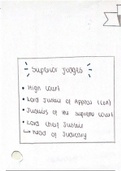 Superior Judges
• High Court
• Lord Justice of Appeal (COA)
• Justices of the Supreme Court
• Lord Chief Justice
↳ Head of Judiciary